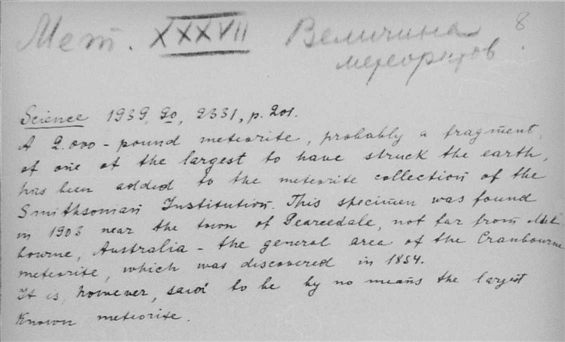 Мет. XXXVII Величина 8
метеоритов
Science 1939, 90, 2331, p. 201.
A 2.000-pound meteorite, probably a fragment
of one of the largest to have struck the earth,
has been added to the meteorite collection of the
Smithsonian Institution. This specimen was found
in 1903 near the town of Pearcedale, not far from Mel
bourne, Australia - the general area of the Cranbourne
meteorite, which was discovered in 1854.
It is, however, said to be by no means the largest
known meteorite.